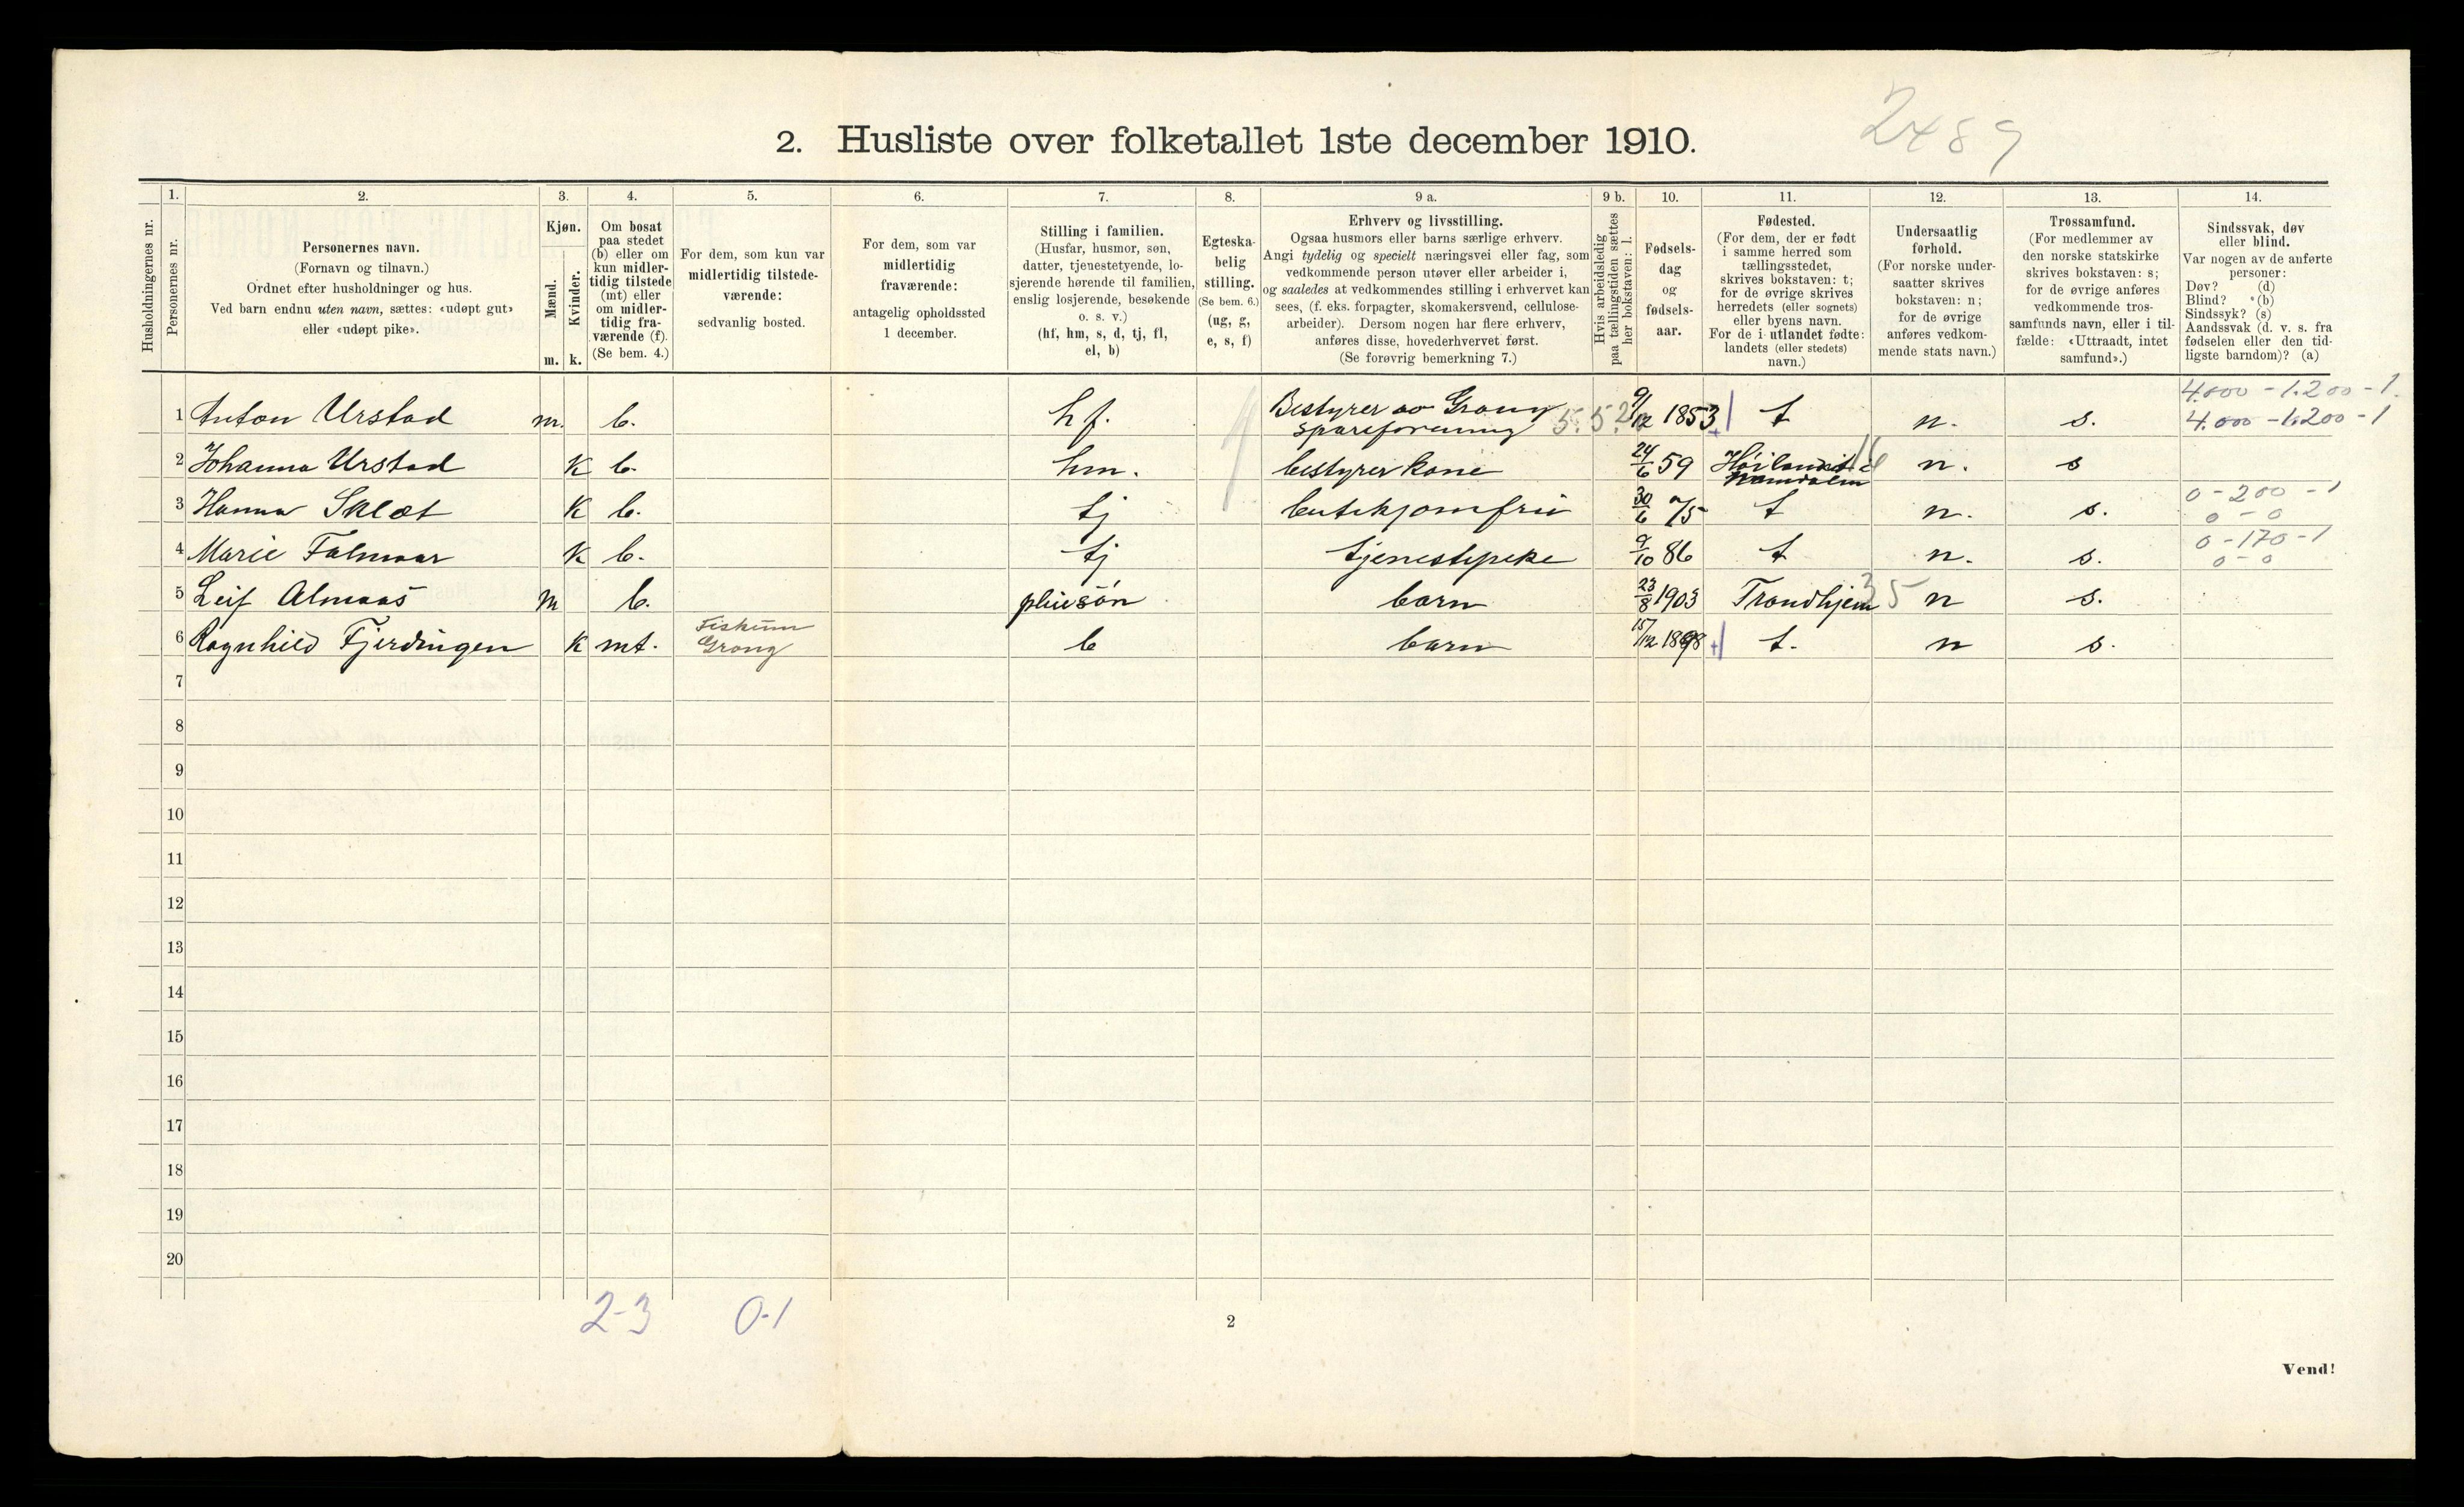 2489
2. Husliste over folketallet 1ste december 1910.
Husholdningernes nr.
1.
Personernes nr.
2.
Personernes navn.
(Fornavn og tilnavn.)
Ordnet efter husholdninger og hus.
Ved barn endnu uten navn, sættes: «udøpt gut»
eller «udøpt pike».
3.
Kjøn.
Mænd.
Kvinder.
m. k.
4.
Om bosat
paa stedet
(b) eller om
kun midler-
tidig tilstede
(mt) eller
om midler-
tidig fra-
værende (f).
(Se bem. 4.)
5.
For dem, som kun var
midlertidig tilstede-
værende:
sedvanlig bosted.
6.
For dem, som var
midlertidig
fraværende:
antagelig opholdssted
1 december.
7.
Stilling i familien.
(Husfar, husmor, søn,
datter, tjenestetyende, lo-
sjerende hørende til familien,
enslig losjerende, besøkende
o. s. v.)
(hf, hm, s, d, tj, fl,
el, b)
8.
Egteska-
belig
stilling.
(Se bem. 6.)
(ug, g,
e, s, f)
9 a.
Erhverv og livsstilling.
Ogsaa husmors eller barns særlige erhverv.
Angi tydelig og specielt næringsvei eller fag, som
vedkommende person utøver eller arbeider i,
og saaledes at vedkommendes stilling i erhvervet kan
sees, (f. eks. forpagter, skomakersvend, cellulose-
arbeider). Dersom nogen har flere erhverv,
anføres disse, hovederhvervet først.
(Se forøvrig bemerkning 7.)
9 b.
Hvis arbeidsledig
paa tællingstiden sættes
her bokstaven: l.
10.
Fødsels-
dag
og
fødsels-
aar.
11.
Fødested.
(For dem, der er født
i samme herred som
tællingsstedet,
skrives bokstaven: t;
for de øvrige skrives
herredets (eller sognets)
eller byens navn.
For de i utlandet fødte:
landets (eller stedets)
navn.)
12.
Undersaatlig
forhold.
(For norske under-
saatter skrives
bokstaven: n;
for de øvrige
anføres vedkom-
mende stats navn.)
13.
Trossamfund.
(For medlemmer av
den norske statskirke
skrives bokstaven: s;
for de øvrige anføres
vedkommende tros-
samfunds navn, eller i til-
fælde: «Uttraadt, intet
samfund».)
14.
Sindssvak, døv
eller blind.
Var nogen av de anførte
personer:
Døv? (d)
Blind? (b)
Sindssyk? (s)
Aandssvak (d. v. s. fra
fødselen eller den tid-
ligste barndom)? (a)
4.000 - 1.200 - 1.
1 Anton Urstad m. b. hf. Bestyrer av Grong 9/12 1853 t n. s. 4.000 - 1.200 - 1
spareforening
2 Johanna Urstad K b. hm. bestyrer kone 24/6 59 Høilandet i 16 n. s
Namdalen
0 - 200 - 1
3 Hanna Sklet K b. tj butikjomfru 30/6 75 t n. s. 0 - 0
0 - 170 - 1
4 Marie Falmoar K b. tj tjenestepike 9/10 86 t n. s. 0 - 0
5 Leif Almaas m b. pleiesøn barn 23/8 1903 Trondhjem 35 n s.
Fiskum
6 Ragnhild Fjerdingen K mt. Grong b barn 15/12 1898 t. n s.
7
8
9
10
11
12
13
14
15
16
17
18
19
20
2-3 0-1
2
Vend!